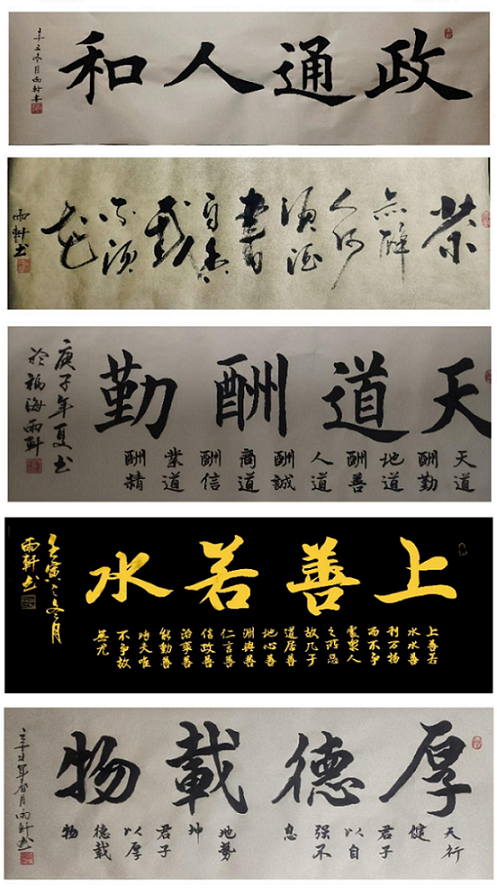 政通人和
辛丑冬月雨軒书
茶
亦醉
人何
须酒
書
自香
我
何须
花
雨軒书
天道酬勤
天道
酬勤
地道
酬善
人道
酬誠
商道
酬信
業道
酬精
庚子年夏书
於福海雨軒
上善若水
上善若
水水善
利万物
而不争
處衆人
之所恶
故几于
道居善
地心善
渊與善
仁言善
信政善
治事善
能動善
时夫唯
不争故
無尤
壬寅冬月
雨軒书
厚德載物
天行
健
君子
以自
强不
息
地勢
坤
君子
以厚
德載
物
辛丑年春月雨軒书